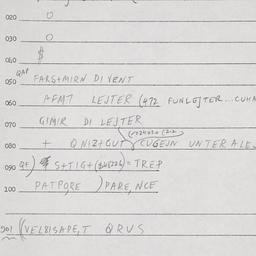 020 0
030 0
040 $
050 QAP FARS+MIRN DI VENT
060 AFMT LEJTER (472 FUNLEJTER...CUHA
070 GIMIR DI LEJTER
080 + QNIZ+GUT CUGEJN UNTERALES
090 QE) S+TIG+ = TREP
100 PATPORE ) PARE, NCE
901 (VELBISAPE,T QRUS